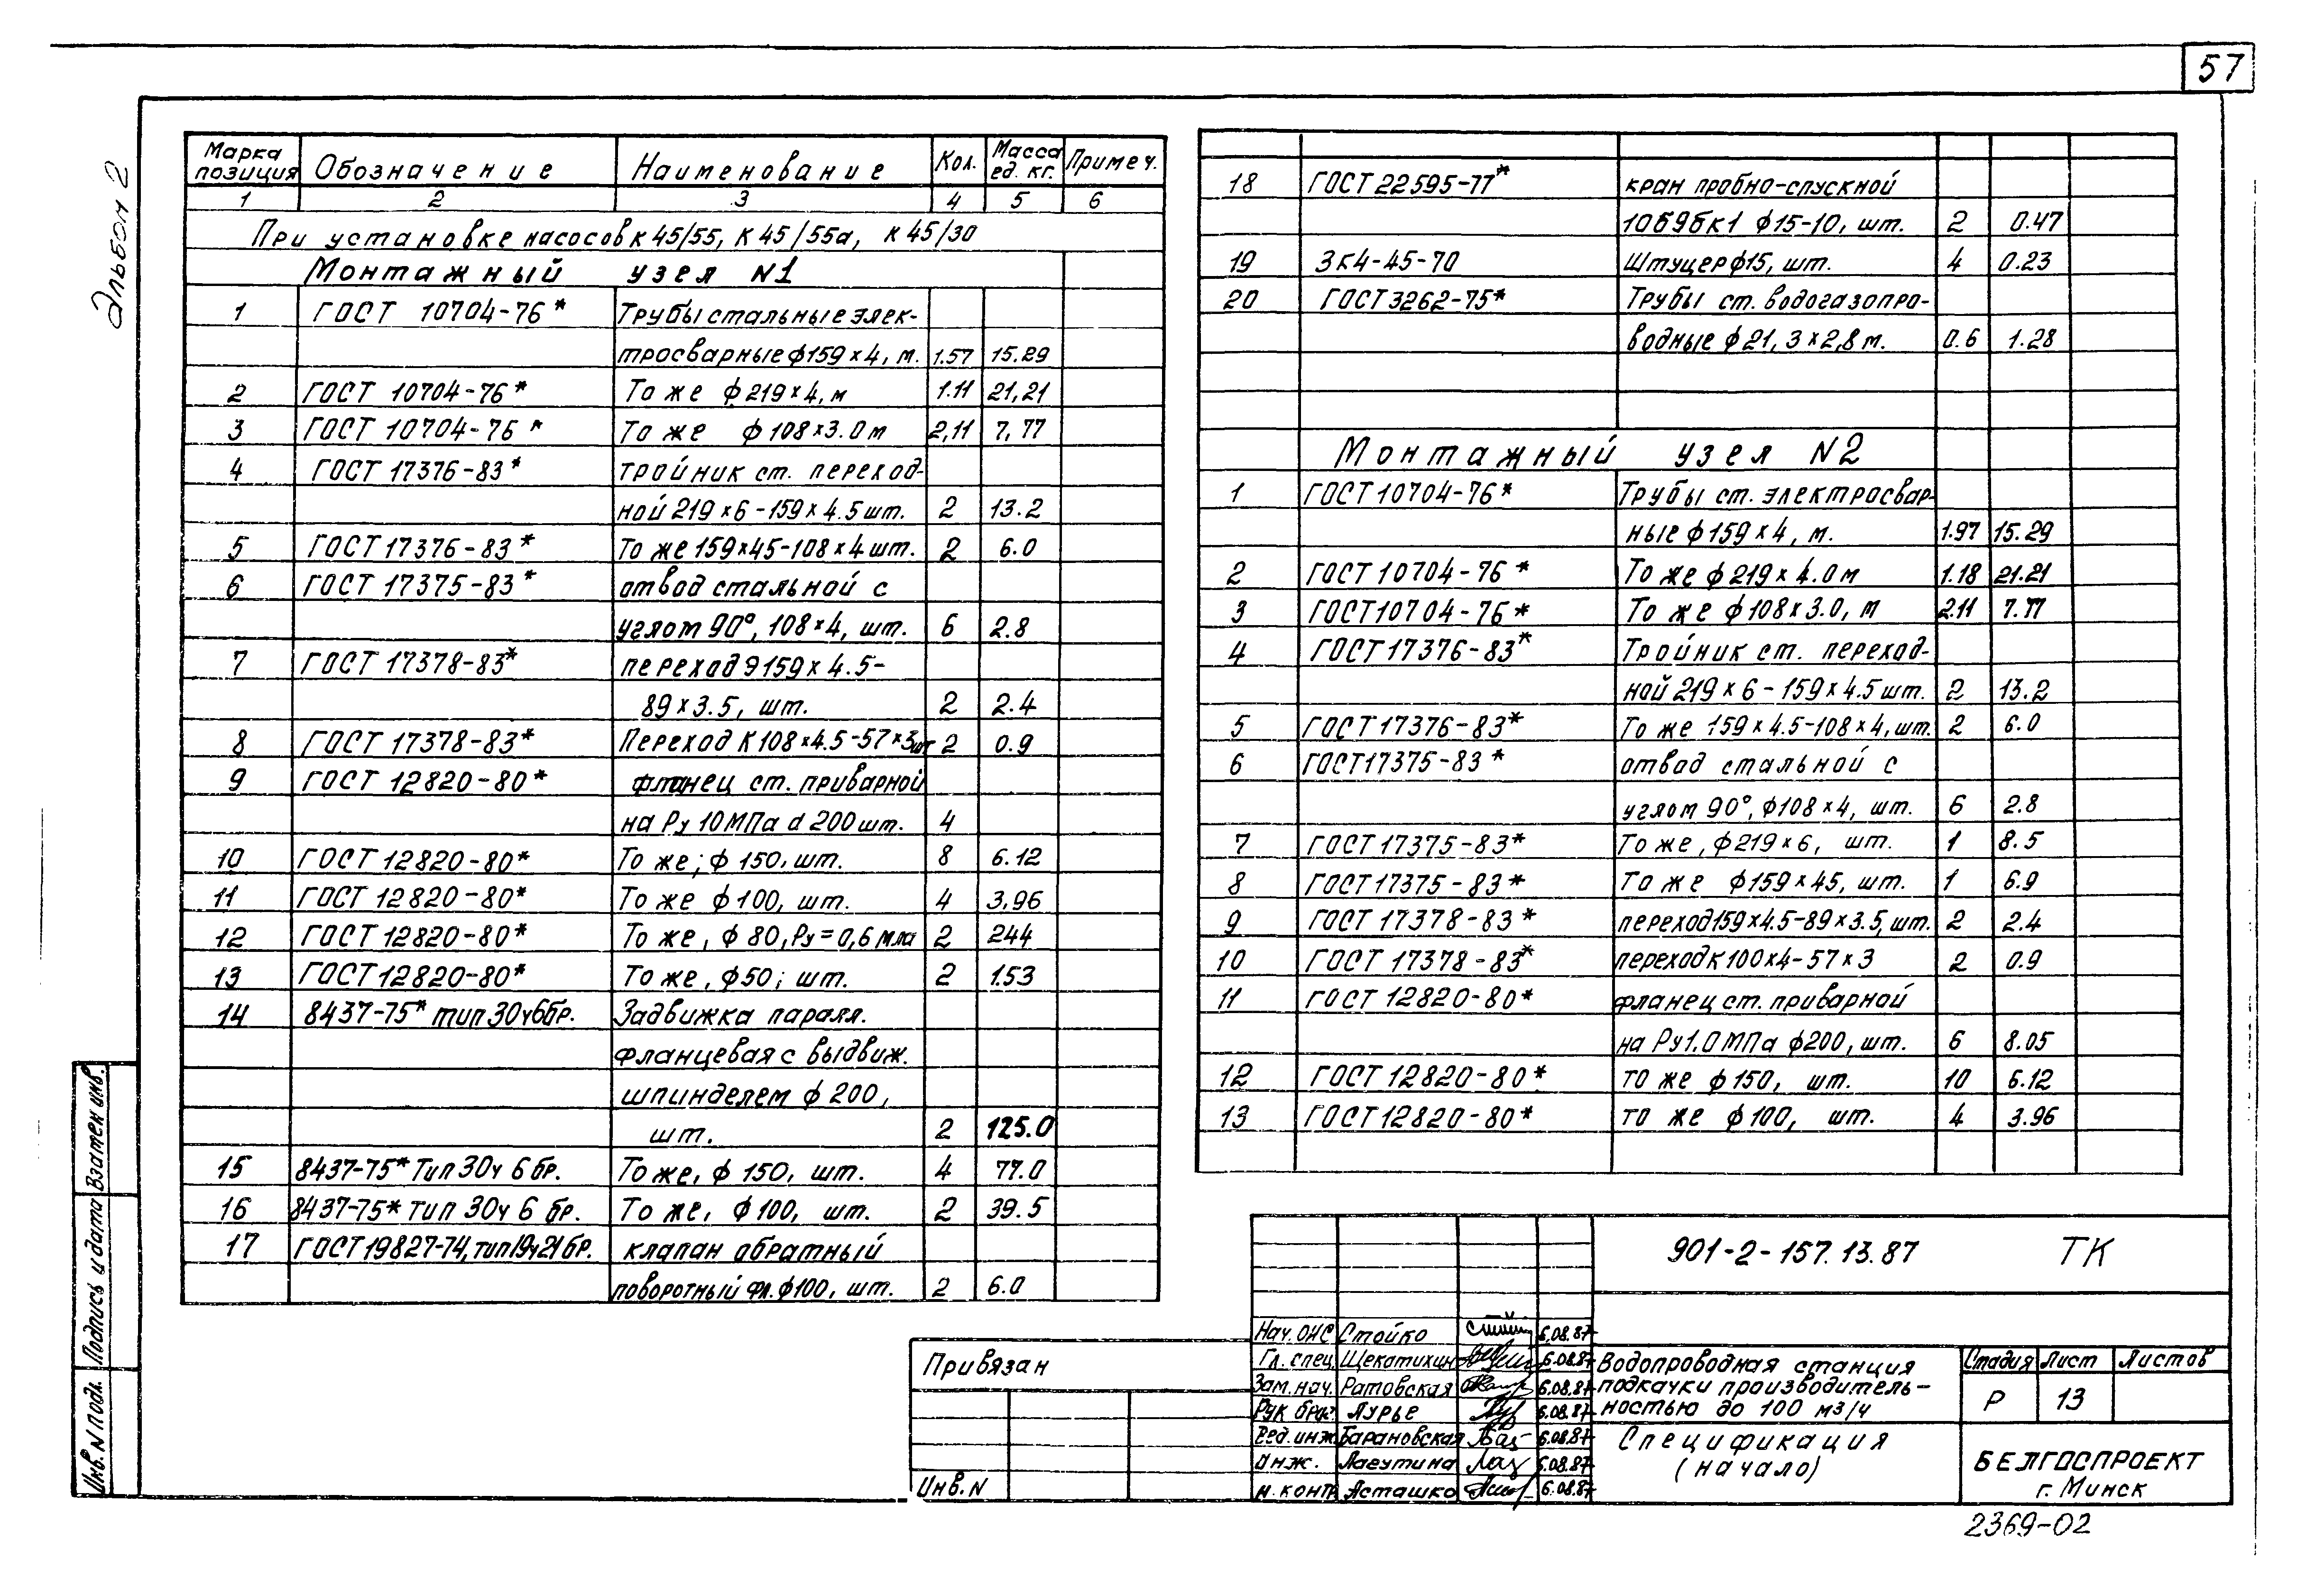 57
Альбом 2
Марка позиция Обозначение Наименование Кол. Масса ед. кг. Примеч.
1 2 3 4 5 6
При установке насосов К 45/55, К 45/55а, К 45/30
Монтажный узел N1
1 ГОСТ 10704-76* Трубы стальные элек-
тросварные ф159×4, м. 1.57 15.29
2 ГОСТ 10704-76* То же ф219×4, м 1.11 21,21
3 ГОСТ 10704-76* То же ф108×3.0 м 2,11 7,77
4 ГОСТ 17376-83* тройник ст. переход-
ной 219×6-159×4.5 шт. 2 13.2
5 ГОСТ 17376-83* То же 159×45-108×4 шт. 2 6.0
6 ГОСТ 17375-83* отвод стальной с
углом 90°, 108×4, шт. 6 2.8
7 ГОСТ 17378-83* переход Э159×4.5-
89×3.5, шт. 2 2.4
8 ГОСТ 17378-83* Переход К108×4.5-57×3 шт 2 0.9
9 ГОСТ 12820-80* фланец ст. приварной
на Ру 10 МПа d 200 шт. 4
10 ГОСТ 12820-80* То же; ф 150, шт. 8 6.12
11 ГОСТ 12820-80* То же ф 100, шт. 4 3.96
12 ГОСТ 12820-80* То же, ф 80, Ру=0,6 мпа 2 244
13 ГОСТ 12820-80* То же, ф50; шт. 2 1.53
14 8437-75* тип 30ч6бр. Задвижка паралл.
фланцевая с выдвиж.
шпинделем ф 200,
шт. 2 125.0
15 8437-75* Тип 30ч 6 бр. То же, ф 150, шт. 4 77.0
16 8437-75* Тип 30ч 6 бр. То же, ф100, шт. 2 39.5
17 ГОСТ 19827-74, тип 19ч21 бр. клапан обратный
поворотный фл. ф100, шт. 2 6.0
18 ГОСТ 22595-77* кран пробно-спускной
10б9бк1 ф15-10, шт. 2 0.47
19 3К4-45-70 Штуцер ф15, шт. 4 0.23
20 ГОСТ 3262-75* Трубы ст. водогазопро-
водные ф21,3×2,8 м. 0.6 1.28
Монтажный узел N2
1 ГОСТ 10704-76* Трубы ст. электросвар-
ные ф159×4, м. 1.97 15.29
2 ГОСТ 10704-76* То же ф219×4.0 м 1.18 21.21
3 ГОСТ 10704-76* То же ф108×3.0, м 2.11 7.77
4 ГОСТ 17376-83* Тройник ст. переход-
ной 219×6-159×4.5 шт. 2 13.2
5 ГОСТ 17376-83* То же 159×4.5-108×4, шт. 2 6.0
6 ГОСТ 17375-83* отвод стальной с
углом 90°, ф108×4, шт. 6 2.8
7 ГОСТ 17375-83* То же, ф219×6, шт. 1 8.5
8 ГОСТ 17375-83* То же ф159×45, шт. 1 6.9
9 ГОСТ 17378-83* переход 159×4.5-89×3.5, шт. 2 2.4
10 ГОСТ 17378-83* переход К 100×4-57×3 2 0.9
11 ГОСТ 12820-80* фланец ст. приварной
на Ру 1.0 МПа ф200, шт. 6 8.05
12 ГОСТ 12820-80* то же ф150, шт. 10 6.12
13 ГОСТ 12820-80* то же ф100, шт. 4 3.96
Привязан
Инв. N
901-2-157.13.87 ТК
Нач. ОНС Стойко 6.08.87
Гл. спец. Щекатихин 6.08.87
Зам. нач. Ратовская 6.08.87
Рук бриг. Лурье 6.08.87
Вед. инж. Барановская 6.08.87
Инж. Лагутина 6.08.87
н. контр Асташко 6.08.87
Водопроводная станция
подкачки производитель-
ностью до 100 м3/ч
Стадия Лист Листов
Р 13
Спецификация
(начало)
БЕЛГОСПРОЕКТ
г. Минск
2369-02
Инв. N подл. Подпись и дата Взамен инв.